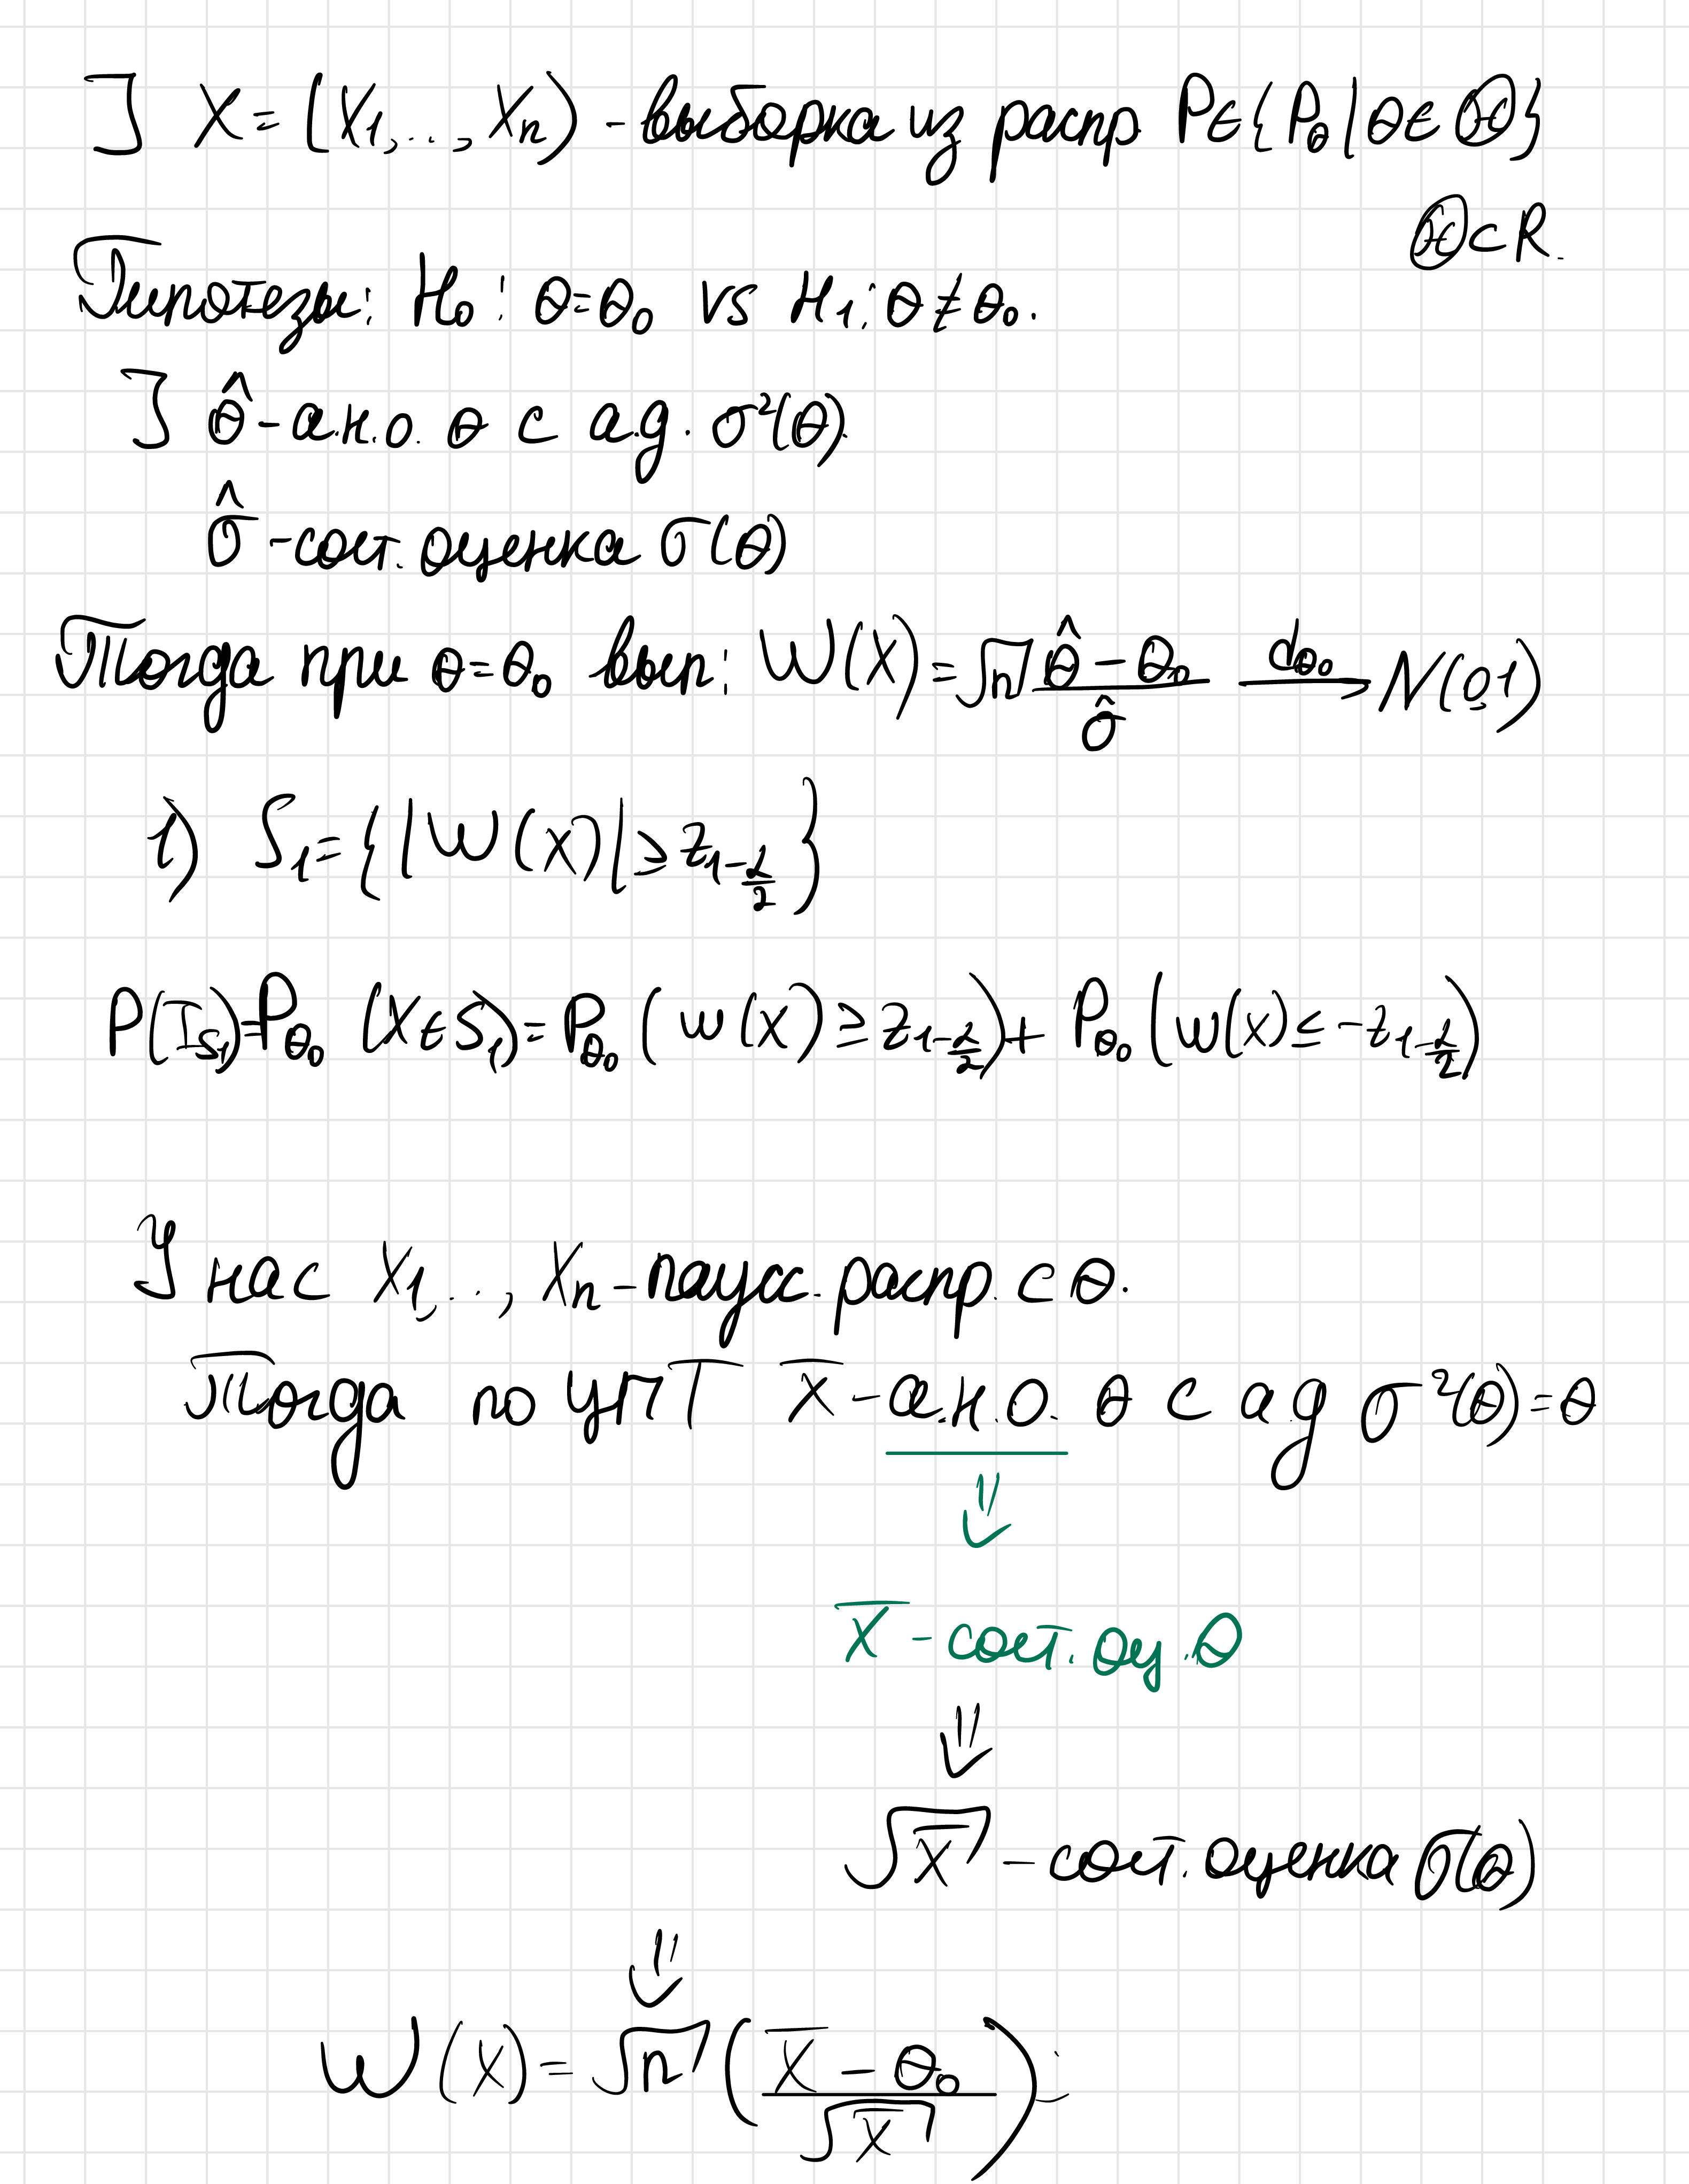 ] X = (X₁,..., Xₙ) - выборка из распр P∈{P_θ | θ∈Θ}
Θ⊂R.
Гипотезы: H₀: θ=θ₀ vs H₁: θ≠θ₀.
] θ̂ - а.н.о. θ с а.д. σ²(θ)
σ̂ - сост. оценка σ(θ)
Тогда при θ=θ₀ вып: W(X) = √n (θ̂ - θ₀)/σ̂ →^{d_θ₀} N(0,1)
1) S₁ = {|W(X)| ≥ z_{1-α/2}}
P(I_{S₁}) = P_θ₀ (X∈S₁) = P_θ₀ (W(X) ≥ z_{1-α/2}) + P_θ₀ (W(X) ≤ -z_{1-α/2})
У нас X₁,..., Xₙ - паусс. распр. с θ.
Тогда по ЦПТ X̄ - а.н.о. θ с а д σ²(θ) = θ
⇓
X̄ - сост. оц. θ
⇓
√X̄ - сост. оценка σ(θ)
⇓
W(X) = √n ((X̄ - θ₀)/√X̄) =